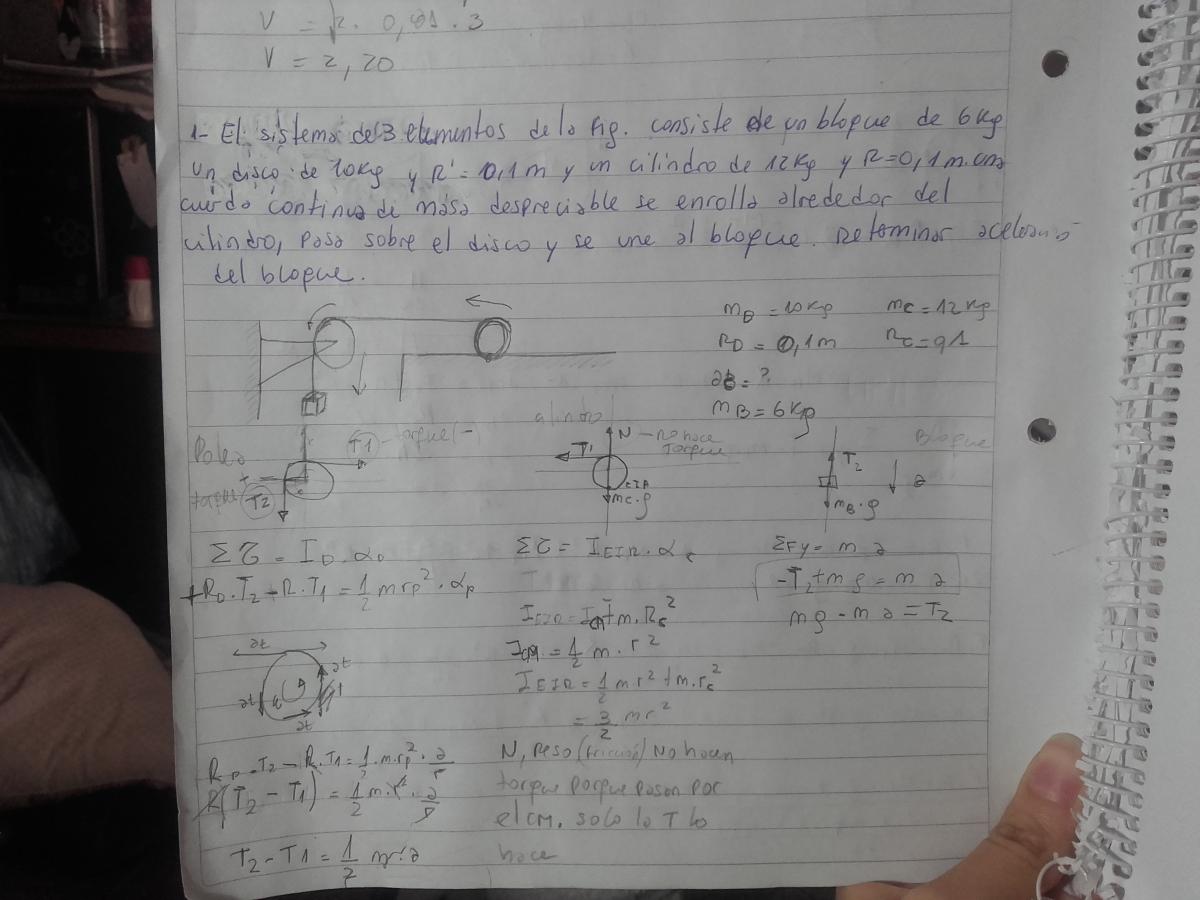 V = √2. 0,91.3
V = 2,20
1- El sistema de 3 elementos de la fig. consiste de un bloque de 6 Kg
un disco de 10Kg y R = 0,1 m y un cilindro de 12 Kg y R=0,1 m. una
cuerda continua de masa despreciable se enrolla alrededor del
cilindro, pasa sobre el disco y se une al bloque. Determinar
del bloque.
mD = 10 Kg mc = 12 Kg
RD = 0,1 m Rc = 0,1
a = ?
mB = 6 Kg
Polea
T1 - torque (-)
+
torque T2
cilindro
N - no hace
torque
T1
EIR
mc.g
Bloque
T2
a
mB.g
Στ = ID.αD
+RD.T2 - R.T1 = 1/2 m rD² . αD
at
at
at
at
RD.T2 - R.T1 = 1/2 .m.rD² . a/r
R(T2 - T1) = 1/2 m.r² . a/r
T2 - T1 = 1/2 m.a
Στ = IEIR.αc
IEIR = ICM + m.Rc²
ICM. = 1/2 m. r²
IEIR = 1/2 m r² + m.rc²
= 3/2 m r²
N, peso (fricción) No hacen
torque porque pasan por
el CM. solo la T lo
hace
ΣFy = m a
-T2 + m g = m a
mg - m a = T2